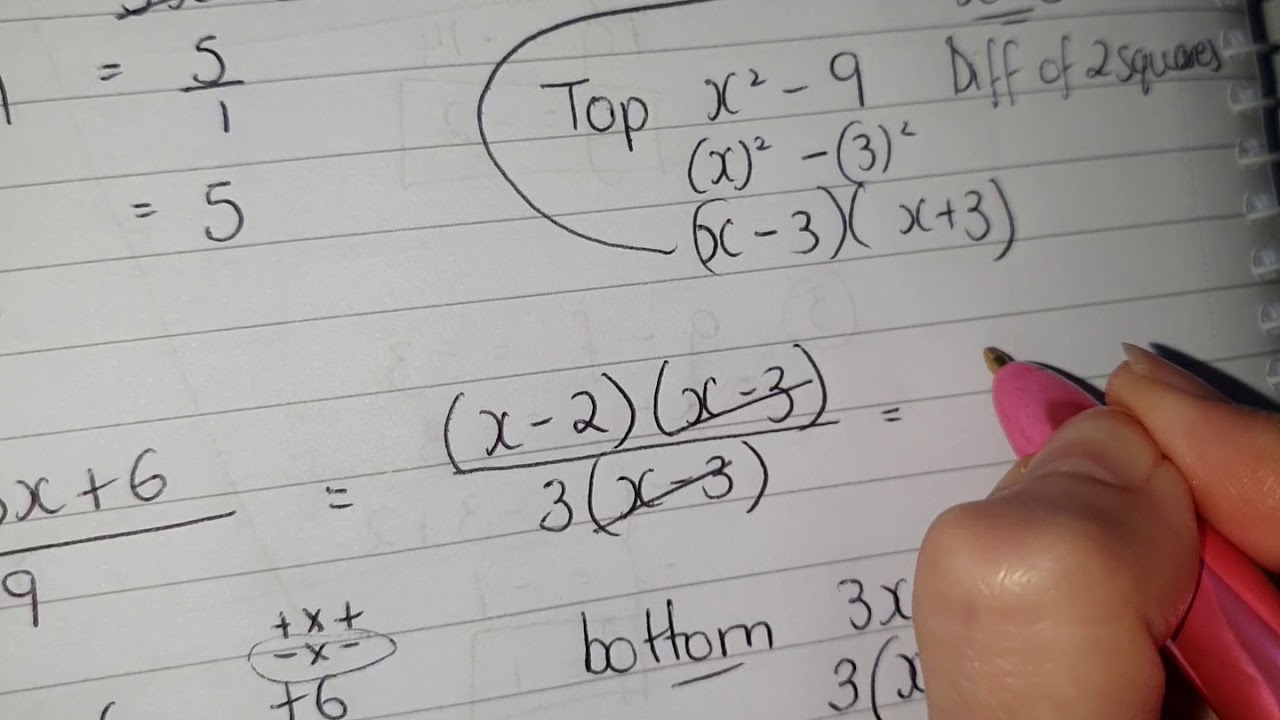 = 5/1
= 5
Top x² - 9 Diff of 2 squares
(x)² - (3)²
(x - 3)(x + 3)
x + 6 / 9 = (x - 2)(x - 3) / 3(x - 3) =
+ x +
- x -
+6
bottom 3x
3(x